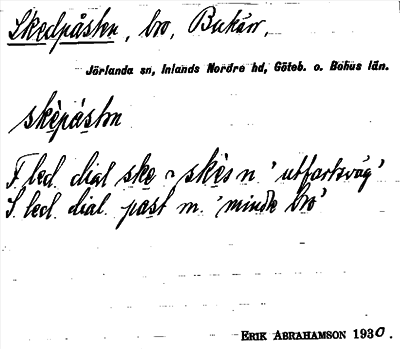 Skedpåsten, bro, Bukärr,
Jörlanda sn, Inlands Nordre hd, Göteb. o. Bohus län.
skèpåstn
F led. dial ske - skès n 'utfartsväg'
S. led. dial. past m. 'mindre bro'
ERIK ABRAHAMSON 1930.